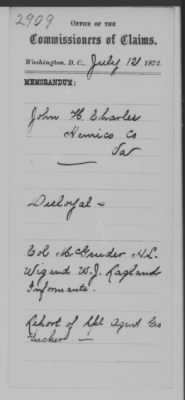 2909
OFFICE OF THE
Commissioners of Claims.
Washington, D. C., July 12 1872.
MEMORANDUM:
John H. Charles
Henrico Co
Va
Disloyal —
Col McGruder H.L.
Wigand W.J. Ragland
Informants.
Report of Spl Agent Geo
Tucker —